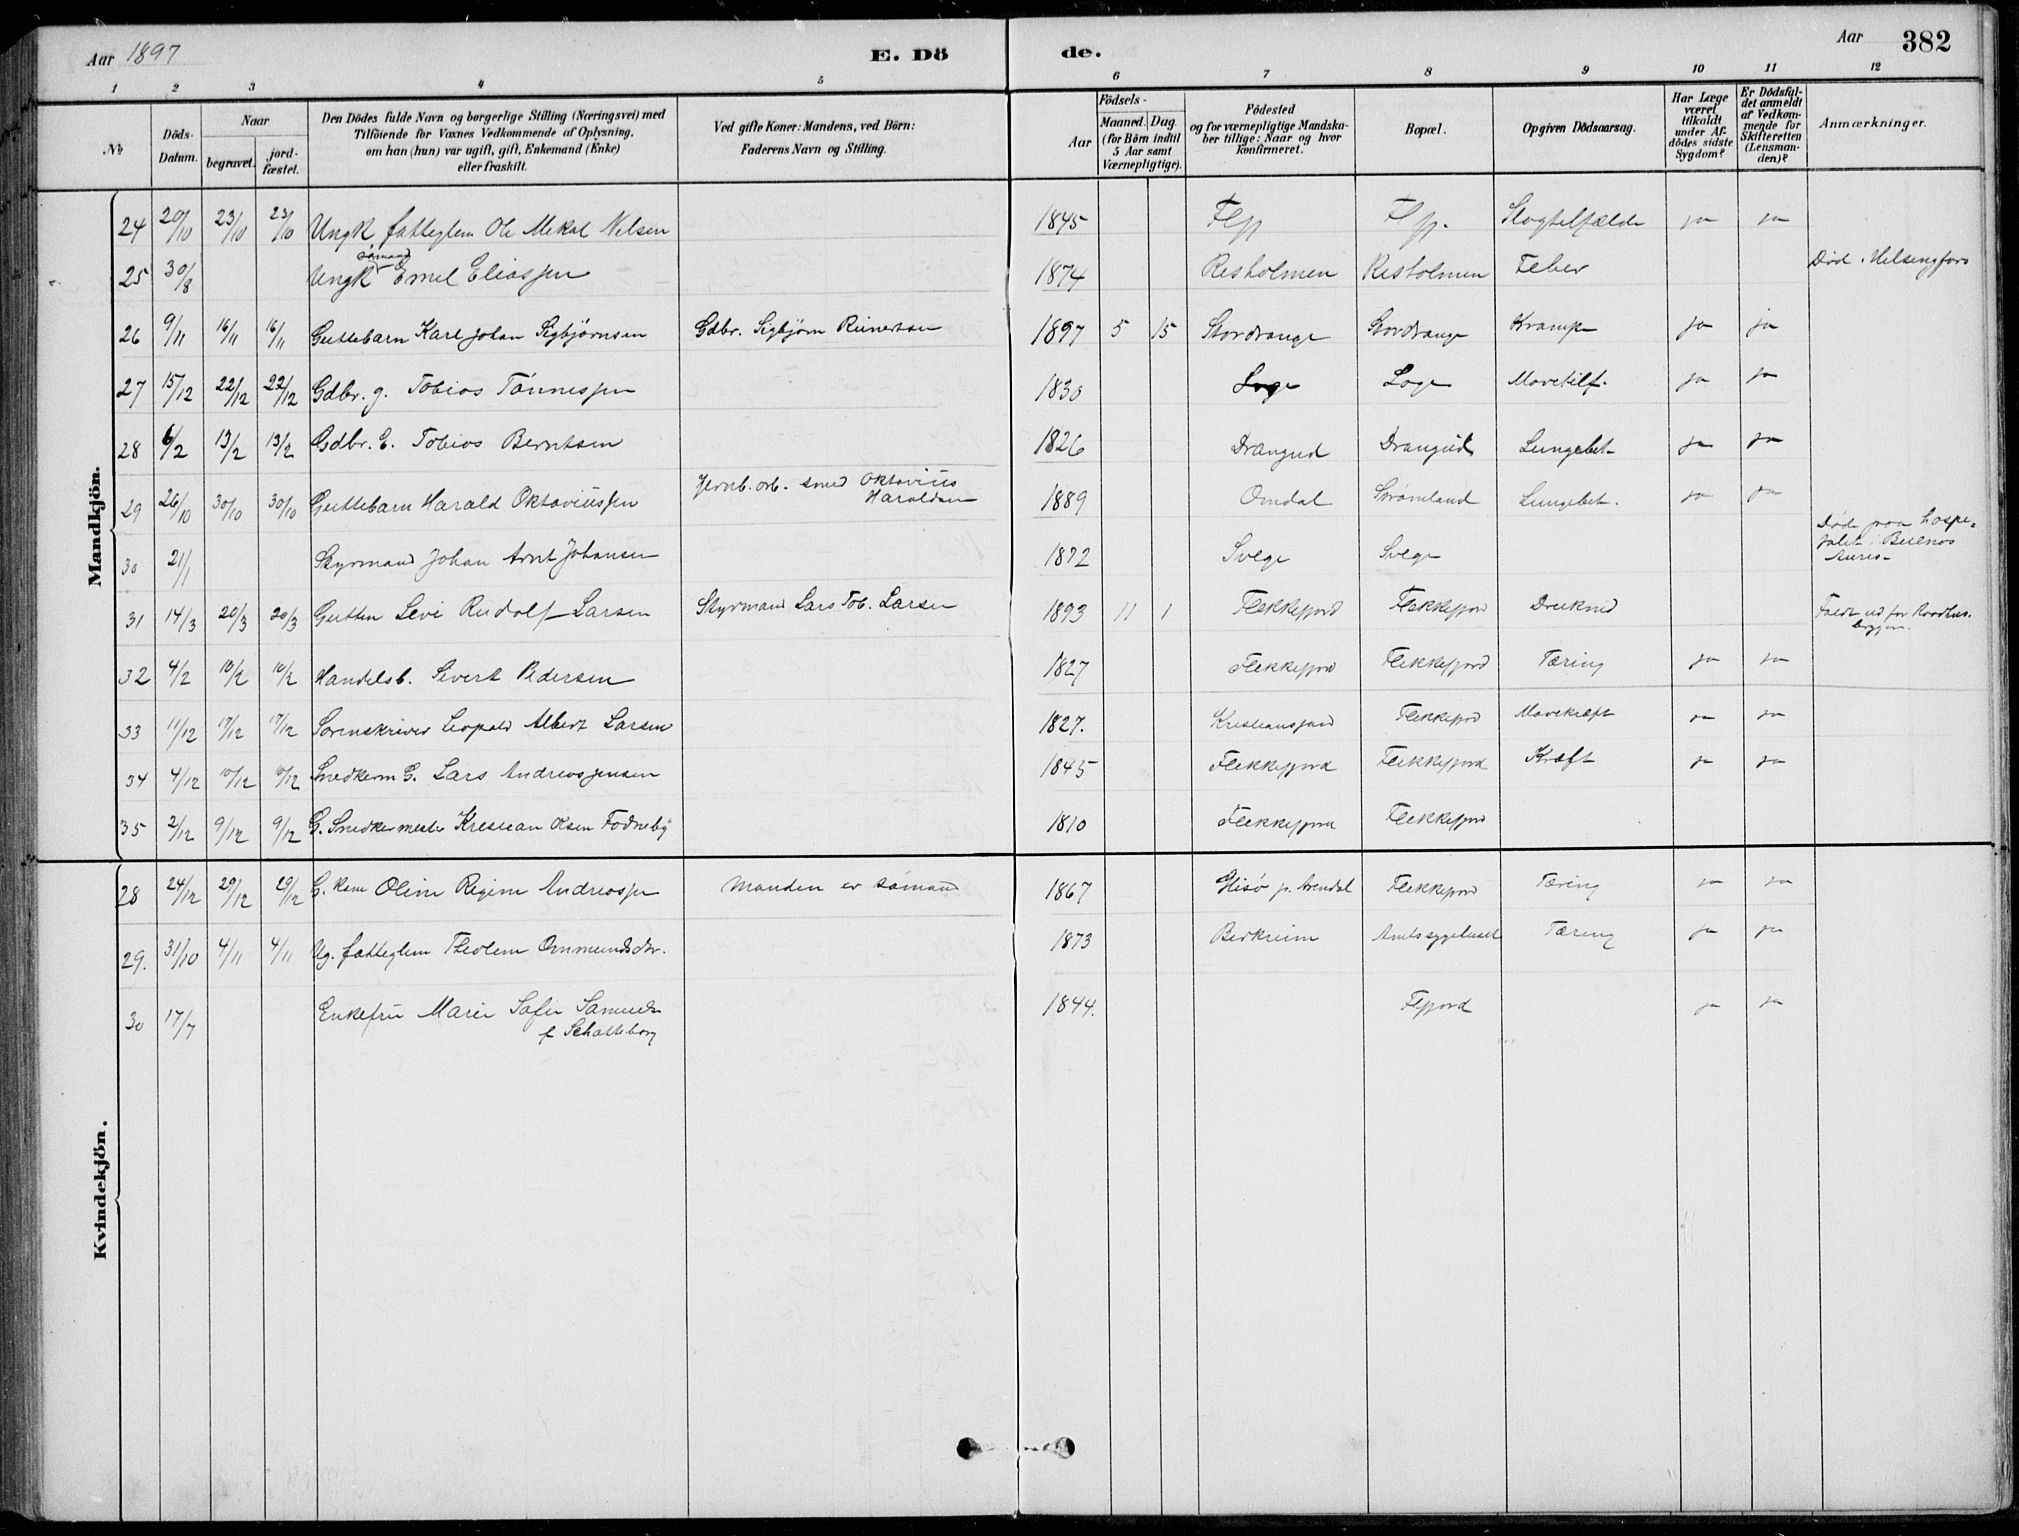 Aar 1897 E. Dö de. Aar 382
1 2 3 4 5 6 7 8 9 10 11 12
№
Döds-Datum.
Naar
begravet.
jordfæstet.
Den Dödes fulde Navn og borgerlige Stilling (Næringsvei) med
Tilföiende for Voxnes Vedkommende af Oplysning,
om han (hun) var ugift, gift, Enkemand (Enke)
eller fraskilt.
Ved gifte Koner: Mandens, ved Börn:
Faderens Navn og Stilling.
Födsels-
Aar
Maaned. Dag.
(for Börn indtil
5 Aar samt
Værnepligtige).
Födested
og for værnepligtige Mandska-
ber tillige: Naar og hvor
konfirmeret.
Bopæl.
Opgiven Dödsaarsag.
Har Læge
været
tilkaldt
under Af-
dödes sidste
Sygdom?
Er Dödsfal-
det anmeldt
af Vedkom-
mende for
Skifteretten
(Lensman-
den)?
Anmærkninger.
Mandkjön.
24 20/10 23/10 23/10 Ungk fatteglem Ole Mekal Nelsen 1845 Flfj Flfj. Slagtilfælde ja ja
sømand
25 30/8 Ungk Emel Eliassen 1874 Resholmen Resholmen Feber Død i Helsingfors
26 9/11 16/11 16/11 Guttebarn Karl Johan Sigbjørnsen Gdbr. Sigbjørn Reinertsen 1897 5 15 Stordrange Stordrange Krampe ja ja
27 15/12 22/12 22/12 Gdbr. g. Tobias Tønnessen 1830 Loge Loge Mavetilf. ja ja
28 6/2 13/2 13/2 Gdbr. E. Tobias Berntsen 1826 Drangeid Drangeid Lungebet. ja ja
29 26/10 30/10 30/10 Guttebarn Harald Oktaviussen Jernb. arb. smed Oktavius
Haraldsen 1889 Omdal Strømland Lungebet. ja ja
30 21/1 Styrmand Johan Arnt Johansen 1872 Svege Svege Døde paa hospe-
talet i Buenos
Aires-
31 14/3 20/3 20/3 Gutten Levi Rudolf Larsen Styrmand Lars Tob. Larsen 1893 11 1 Flekkefjord Flekkefjord Druknet Faldt ud for Raadhus.
bryggen.
32 4/2 10/2 10/2 Handelsb. Sivert Pedersen 1827 Flekkefjord Flekkefjord Tæring ja ja
33 11/12 17/12 17/12 Sorenskriver Leopold Albert Larsen 1827. Kristiansand Flekkefjord Mavekræft ja ja
34 4/12 10/12 10/12 Snedkerm G. Lars Andreas Jensen 1845 Flekkefjord Flekkefjord Kræft ja ja
35 2/12 9/12 9/12 G. Snedkermester Kristian Olsen Fodneby 1810 Flekkefjord Flekkefjord
Kvindekjön.
28 24/12 29/12 29/12 G. kone Oline Regine Andreassen Manden er sømand 1867 Hisø p. Arendal Flekkefjord Tæring ja ja
29. 31/10 4/11 4/11 Ug. fatteglem Theoline Ommundsdtr. 1873 Birkreim Amtssygehuset Tæring ja ja
30 17/7 Enkefru Marie Sofie Samuels.
f Schatteborg 1844. Flfjord ja ja